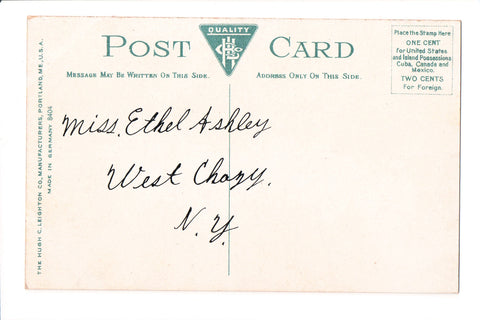 POST CARD
QUALITY
MESSAGE MAY BE WRITTEN ON THIS SIDE.
ADDRESS ONLY ON THIS SIDE.
Place the Stamp Here
ONE CENT
for United States
and Island Possessions
Cuba, Canada and
Mexico.
TWO CENTS
For Foreign.
THE HUGH C. LEIGHTON CO., MANUFACTURERS, PORTLAND, ME., U.S.A.
MADE IN GERMANY 8404
Miss. Ethel Ashley
West Chazy.
N. Y.